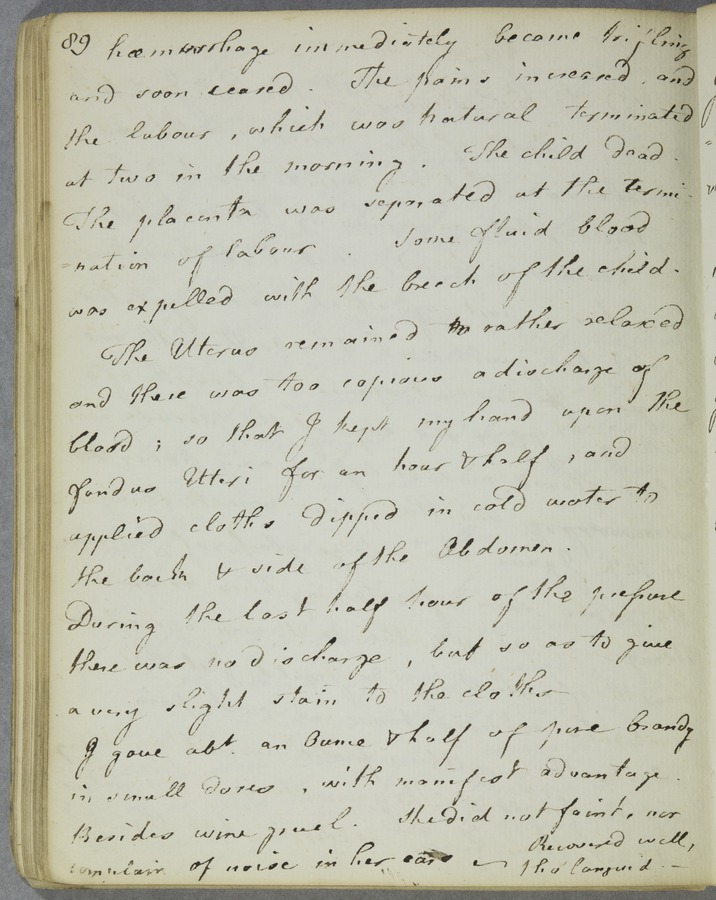 89 hæmorrhage immediately became trifling
and soon ceased. The pains increased and
the labour, which was natural terminated
at two in the morning. The child dead.
The placenta was separated at the termi-
=nation of labour. Some fluid blood
was expelled with the breech of the child.
The Uterus remained rather relaxed
and there was too copious a discharge of
blood; so that I kept my hand upon the
fundus Uteri for an hour & half, and
applied cloths dipped in cold water to
the back & side of the Abdomen.
During the last half hour of the pressure
there was no discharge, but so as to give
a very slight stain to the cloths
I gave abt. an Ounce & half of pure brandy
in small doses, with manifest advantage.
Besides wine gruel. She did not faint, nor
complain of noise in her ears — Recovered well,
tho' languid —